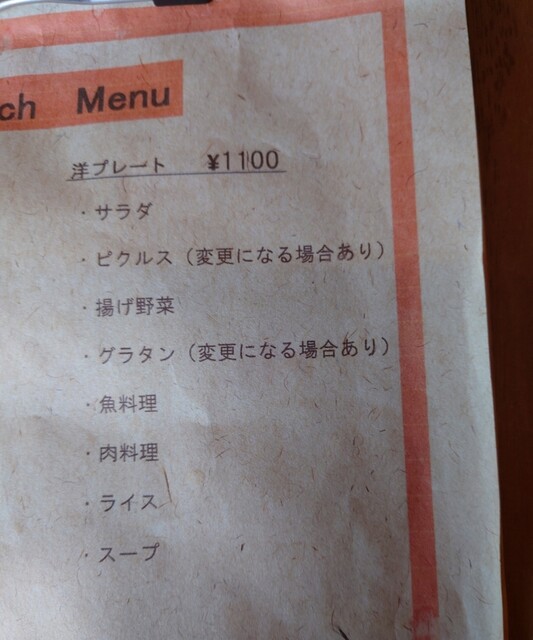 ch Menu
洋プレート ¥1100
・サラダ
・ピクルス（変更になる場合あり）
・揚げ野菜
・グラタン（変更になる場合あり）
・魚料理
・肉料理
・ライス
・スープ